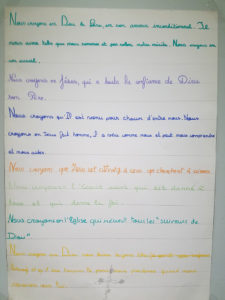 Nous croyons en Dieu le Père, en son amour inconditionnel. Il
nous aime tels que nous sommes et pas selon notre mérite. Nous croyons en
son accueil.
Nous croyons en Jésus, qui a toute la confiance de Dieu
son Père.
Nous croyons qu'Il est venu pour chacun d'entre nous. Nous
croyons en Jésus fait homme, Il a vécu comme nous et peut nous comprendre
et nous aider.
Nous croyons que Jésus est attentif à ceux qui cherchent à
Nous croyons à l'Esprit Saint qui est donné à
tous et qui donne la foi.
Nous croyons en l'Eglise qui réunit tous les "suiveurs de
Dieu"
Nous croyons en Dieu